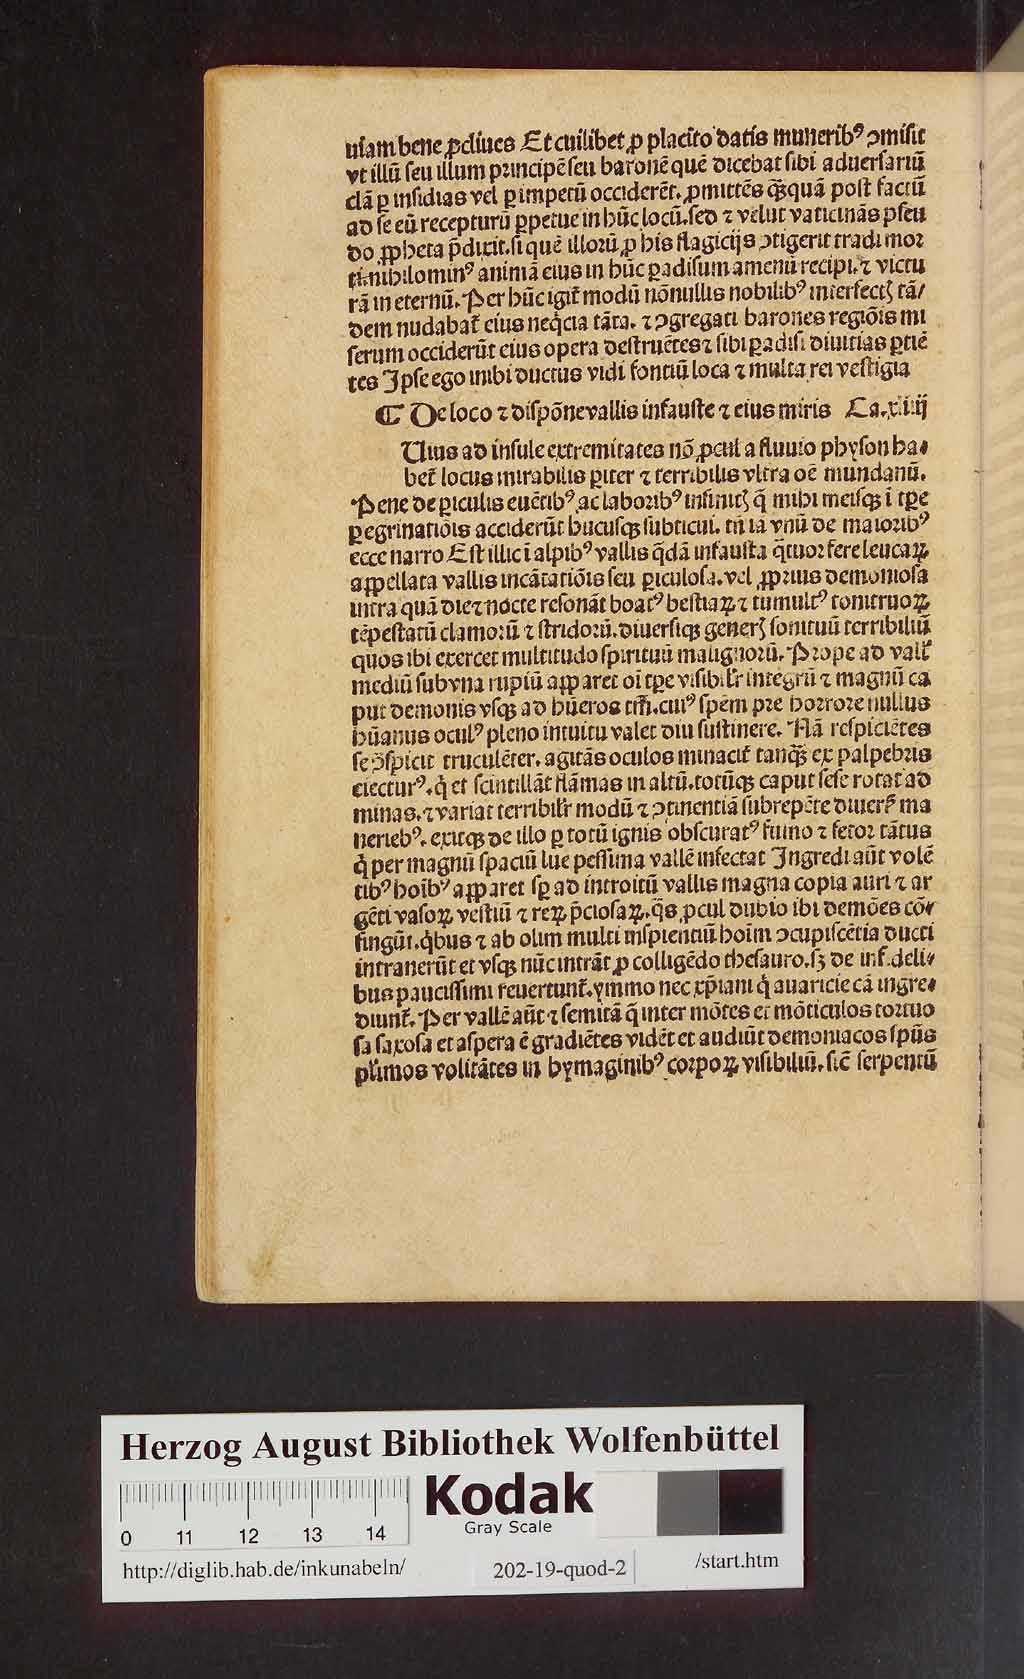 uiam bene ꝓcliues Et cuilibet ꝓ placito datis munerib⁹ ↄmisit
vt illū seu illum principē seu baronē quē dicebat sibi aduersariū
clā ꝑ insidias vel ꝑ impetū occiderēt. ꝓmittēs qꝫquā post factū
ad se eū recepturū ꝑpetue in hūc locū. sed ⁊ velut vaticinās pseu
do ꝓpheta p̄dixit. si quē illorū ꝓ his flagicijs ↄtigerit tradi mor
ti. nihilomin⁹ animā eius in hūc ꝑadisum amenū recipi. ⁊ victu
rā in eternū. Per hūc igit̄ modū nōnullis nobilib⁹ interfectꝭ tā/
dem nudabat̄ eius neq̇cia tāta. ⁊ ↄgregati barones regiōis mi
serum occiderūt eius opera destruētes ⁊ sibi ꝑadisi diuitias ꝑtiē
tes Ipse ego inibi ductus vidi fontiū loca ⁊ multa rei vestigia
¶ De loco ⁊ dispōne vallis infauste ⁊ eius miris Ca. xliiij
Uius ad insule extremitates nō ꝓcul a fluuio physon ha⸗
bet̄ locus mirabilis ꝑiter ⁊ terribilis vltra oē mundanū.
Pene de ꝑiculis euētib⁹ ac laborib⁹ infinitꝭ q̄ mihi meisqꝫ ī tꝑe
ꝑegrinatiōis acciderūt hucusqꝫ subticui. tn̄ iā vnū de maiorib⁹
ecce narro Est illic ī alpib⁹ vallis q̄dā infausta q̄tuor fere leucaꝝ
appellata vallis incātatiōis seu ꝑiculosa. vel ꝓprius demoniosa
intra quā die ⁊ nocte resonāt boat⁹ bestiaꝝ ⁊ tumult⁹ tonitruoꝝ
tēpestatū clamorū ⁊ stridorū. diuersiqꝫ generꝭ sonituū terribiliū
quos ibi exercet multitudo spirituū malignorū. Prope ad vall̄
mediū sub vna rupiū apparet oī tꝑe visibil'r integrū ⁊ magnū ca
put demonis vsqꝫ ad hūeros tm̄. cui⁹ spēm pre horrore nullus
hūanus ocul⁹ pleno intuitu valet diu sustinere. Nā respiciētes
se ↄspicit truculēter. agitās oculos minacit̄ tanqꝫ ex palpebris
eiectur⁹. q̇ et scintillāt flāmas in altū. totūqꝫ caput sese rotat ad
minas. ⁊ variat terribil'r modū ⁊ ↄtinentiā subrepēte diuers̄ ma
nerieb⁹. exitqꝫ de illo ꝑ totū ignis obscurat⁹ fumo ⁊ fetor tātus
q̇ per magnū spaciū lue pessima vallē infectat Ingredi aūt volē
tib⁹ hoīb⁹ apparet sꝑ ad introitū vallis magna copia auri ⁊ ar
gēti vasoꝝ vestiū ⁊ reꝝ p̄ciosaꝝ. q̄s ꝓcul dubio ibi demōes cō⸗
fingūt. q̇bus ⁊ ab olim multi insipientiū hoīm ↄcupiscētia ducti
intrauerūt et vsqꝫ nūc intrāt ꝓ colligēdo thesauro. sꝫ de inf.deli⸗
bus paucissimi reuertunt̄. ymmo nec xp̄iani q̇ auaricie cā ingre⸗
diunt̄. Per vallē aūt ⁊ semitā q̄ inter mōtes et mōticulos tortuo
sa saxosa et aspera ē gradiētes vidēt et audiūt demoniacos sp̄us
pl'imos volitātes in hymaginib⁹ corpoꝝ visibiliū. sic̄ serpentū
Herzog August Bibliothek Wolfenbüttel
Kodak
Gray Scale
0 11 12 13 14
http://diglib.hab.de/inkunabeln/ 202-19-quod-2 /start.htm